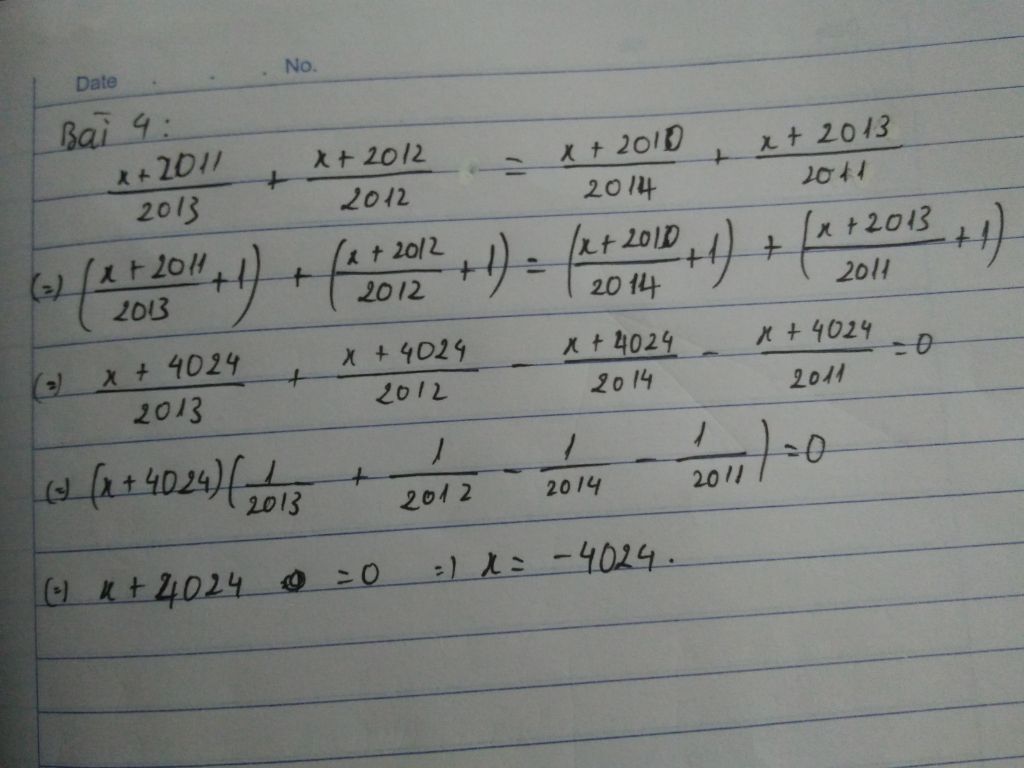 Date . . . No.
Bài 4:
\frac{x+2011}{2013} + \frac{x+2012}{2012} = \frac{x+2010}{2014} + \frac{x+2013}{2011}
(=) (\frac{x+2011}{2013}+1) + (\frac{x+2012}{2012}+1) = (\frac{x+2010}{2014}+1) + (\frac{x+2013}{2011}+1)
(=) \frac{x+4024}{2013} + \frac{x+4024}{2012} - \frac{x+4024}{2014} - \frac{x+4024}{2011} = 0
(=) (x+4024)(\frac{1}{2013} + \frac{1}{2012} - \frac{1}{2014} - \frac{1}{2011}) = 0
(=) x+4024 = 0 =) x = -4024.